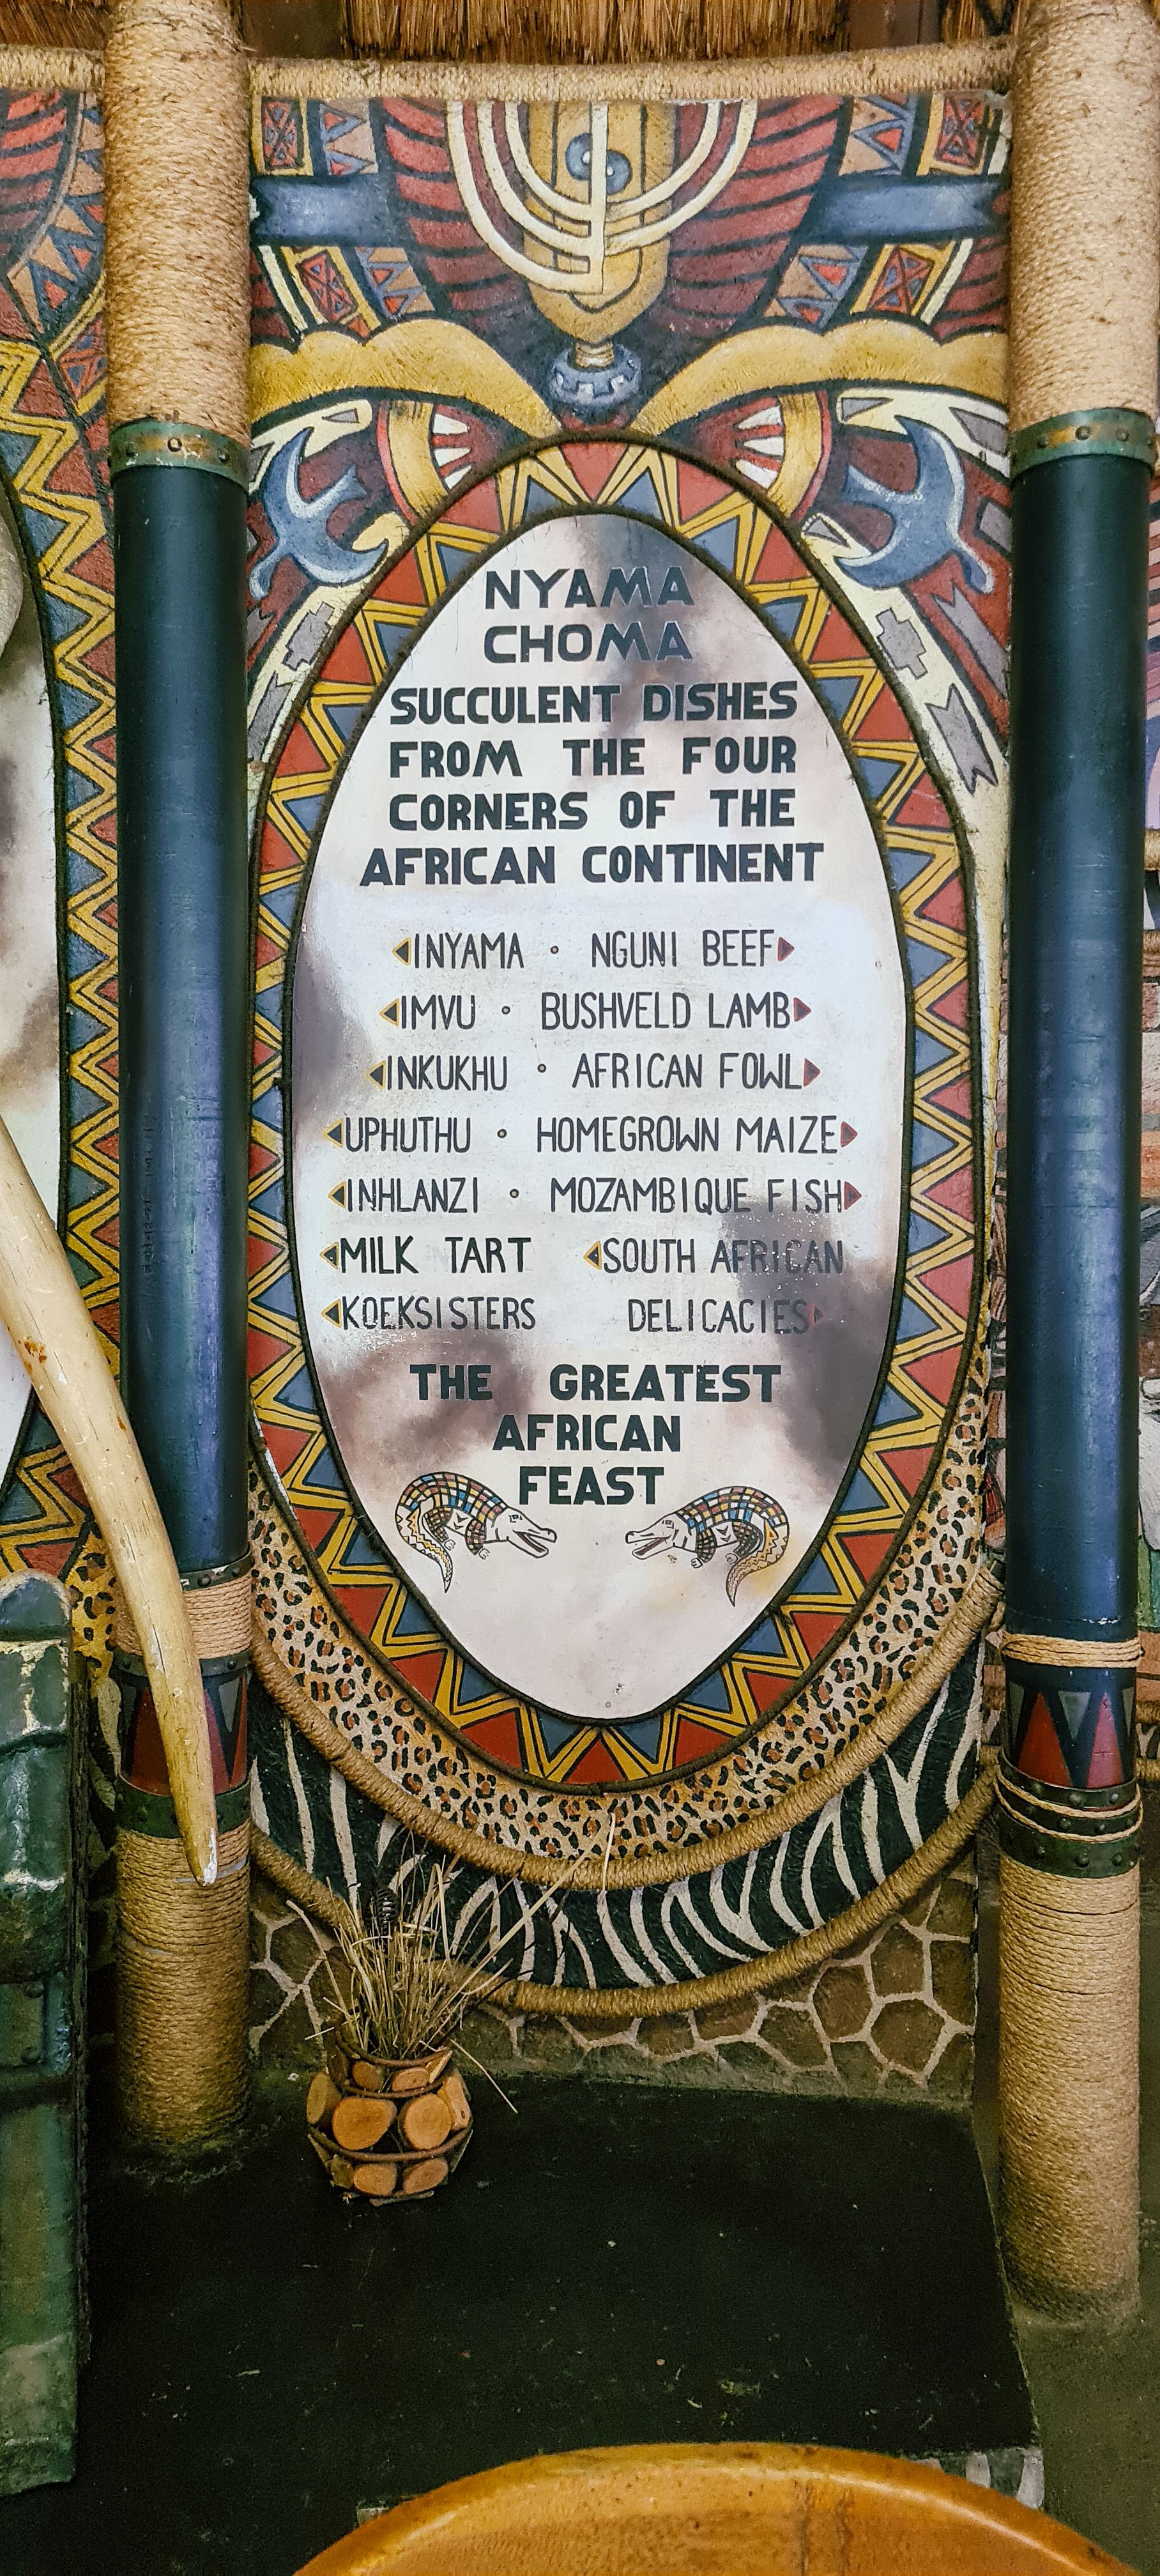 NYAMA
CHOMA
SUCCULENT DISHES
FROM THE FOUR
CORNERS OF THE
AFRICAN CONTINENT
INYAMA · NGUNI BEEF
IMVU · BUSHVELD LAMB
INKUKHU · AFRICAN FOWL
UPHUTHU · HOMEGROWN MAIZE
INHLANZI · MOZAMBIQUE FISH
MILK TART SOUTH AFRICAN
KOEKSISTERS DELICACIES
THE GREATEST
AFRICAN
FEAST